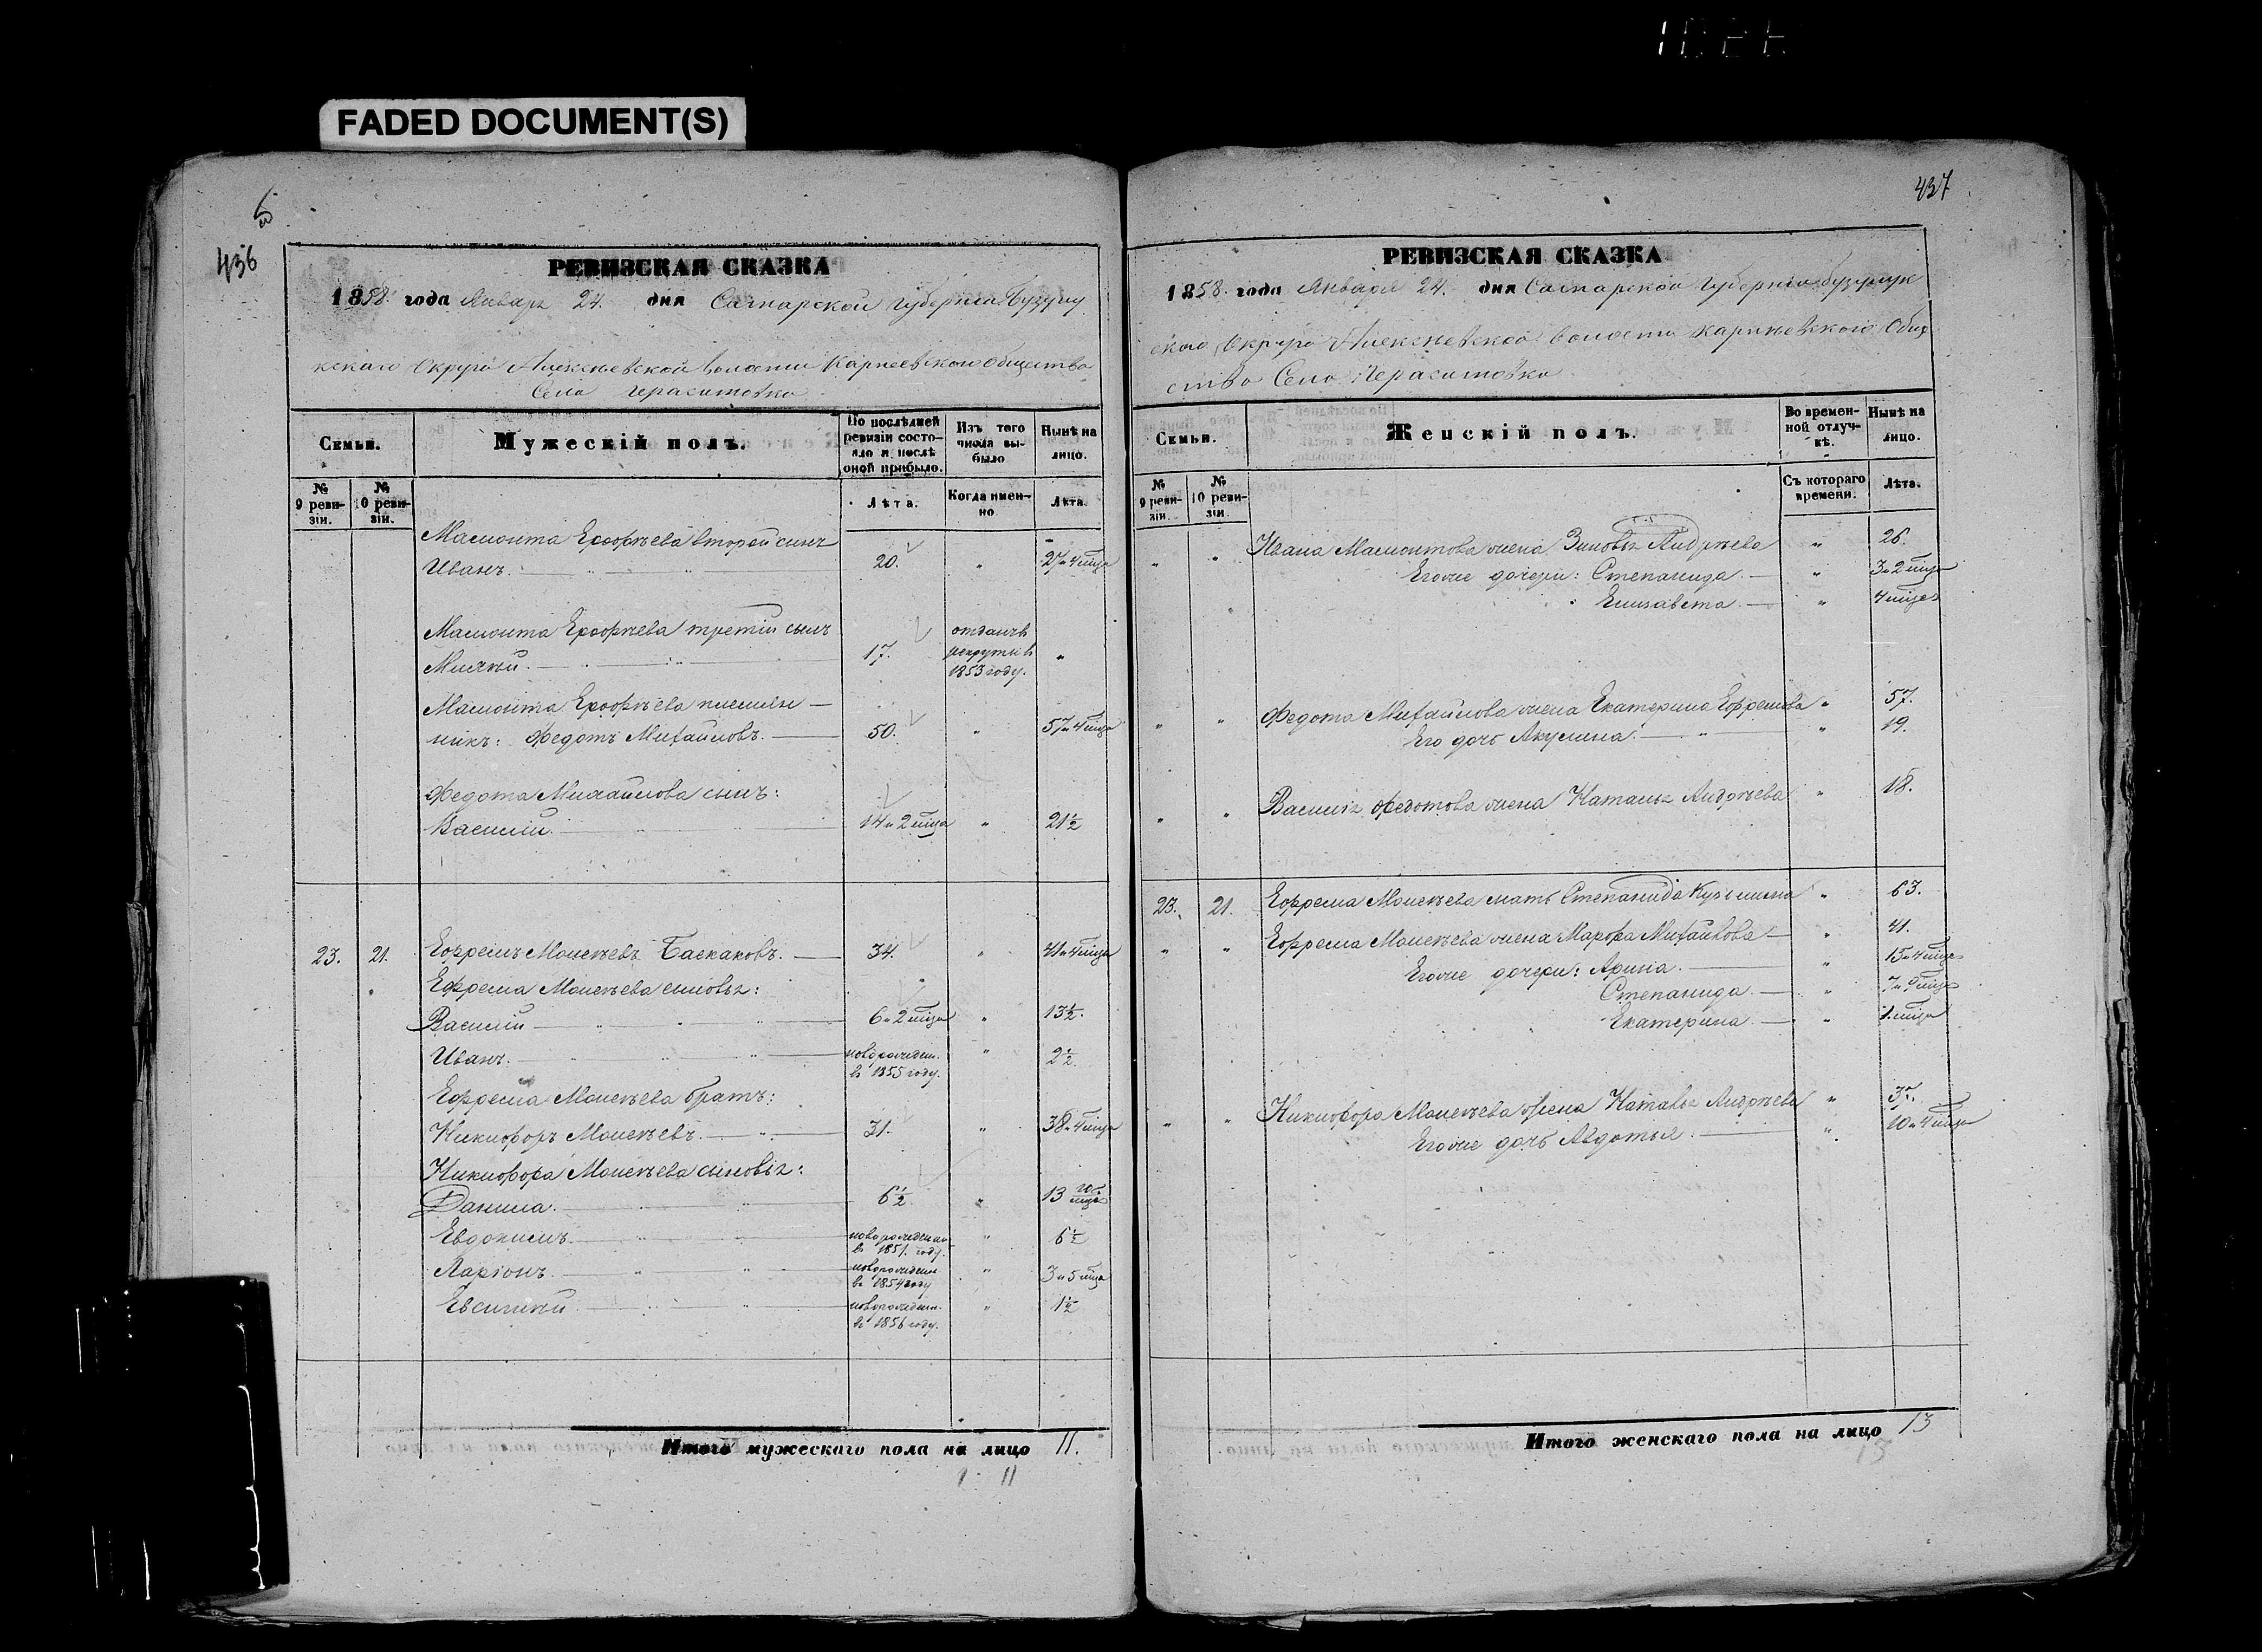 FADED DOCUMENT(S)
436
РЕВИЗСКАЯ СКАЗКА
1858. года Января 24. дня Самарской Губерніи Бузулу
кскаго Округа Алексѣевской волости Карпеевскаго Общества
Села Герасимовка
Семьи.
Мужескій полъ.
По послѣдней ревизіи состояло и послѣ оной прибыло.
Изъ того числа выбыло
Нынѣ на лицо.
№ 9 ревизіи.
№ 10 ревизіи.
Лѣта.
Когда именно.
Лѣта.
Мамонта Ерофѣева второй сынъ
Иванъ. 20. " 27 и 4 мца
Мамонта Ерофѣева третій сынъ
17. отданъ в рекруты в 1853 году. "
Мамонта Ерофѣева племян—
никъ: Федотъ Михайловъ. 50. " 57 и 4 мца
Федота Михайлова сынъ:
Василій. 14 и 2 мца " 21½
23. 21. Ефремъ Моисѣевъ Баскаковъ. 34. " 41 и 4 мца
Ефрема Моисѣева сыновья:
Василій 6 и 2 мца " 13½.
Иванъ. новорожден. в 1855 году. " 2½.
Ефрема Моисѣева братъ:
Никифоръ Моисѣевъ. 31. " 38 и 4 мца
Никифора Моисѣева сыновья:
Данила. 6½ " 13
Евдокимъ. новорожден в 1851. году. " 6½
Ларіонъ. новорожден в 1854 году " 3 и 5 мца
Евсигнѣй новорожден. в 1856 году. " 1½
Итого мужескаго пола на лицо 11.
11
437
РЕВИЗСКАЯ СКАЗКА
1858. года Января 24. дня Самарской Губерніи Бузулук
скаго Округа Алексѣевской волости Карпѣевского Общ
ства Села Герасимовка
Семьи.
Женскій полъ.
Во временной отлучкѣ.
Нынѣ на лицо.
№ 9 ревизіи.
№ 10 ревизіи.
Съ котораго времени.
Лѣта.
" " Ивана Мамонтова жена Зиновья Андрѣева " 26.
Егоже дочери: Степанида. " 3 и 2 мца
Елизавета. " 4 мца
" " Федота Михайлова жена Екатерина Ефремова " 57.
Его дочь Акулина. " 19.
" " Василья Федотова жена Наталья Андрѣева " 18.
23. 21. Ефрема Моисѣева мать Степанида Кузьмина " 63.
" " Ефрема Моисѣева жена Марфа Михайлова " 41.
Егоже дочери: Арина. " 15 и 4 мца
Степанида. " 7 и 9 мца
Екатерина. " 1. мца
" " Никифора Моисѣева жена Наталья Андрѣева "
Егоже дочь Авдотья. " 10 и 4 мца
Итого женскаго пола на лицо 13
13